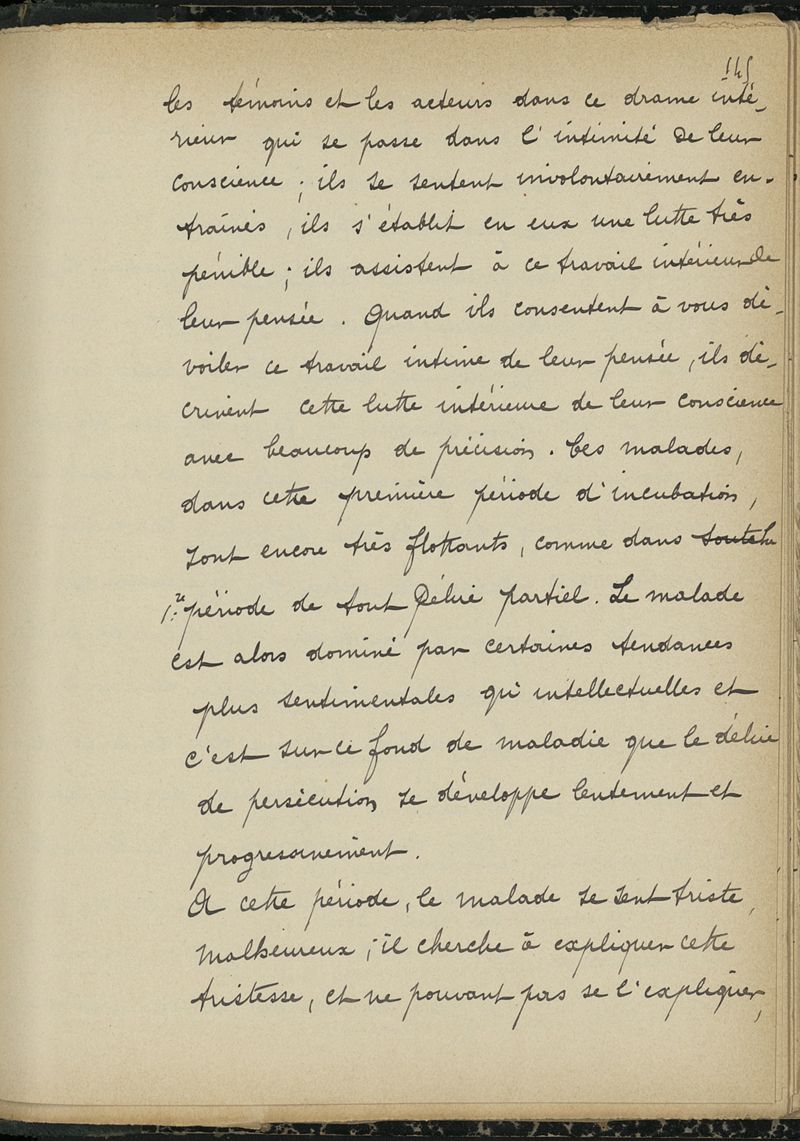 145
les témoins et les acteurs dans ce drame inté-
rieur qui se passe dans l'intimité de leur
conscience ; ils se sentent involontairement en-
traînés, ils s'établit en eux une lutte très
pénible ; ils assistent à ce travail intérieur de
leur pensée. Quand ils consentent à vous dé-
voiler ce travail intime de leur pensée, ils dé-
crivent cette lutte intérieure de leur conscience
avec beaucoup de précision. Ces malades,
dans cette première période d'incubation,
sont encore très flottants, comme dans toute la
1re période de tout Délire partiel. Le malade
est alors dominé par certaines tendances
plus sentimentales qu'intellectuelles et
c'est sur ce fond de maladie que le délire
de persécution se développe lentement et
progressivement.
A cette période, le malade se sent triste,
malheureux ; il cherche à expliquer cette
tristesse, et ne pouvant pas se l'expliquer,